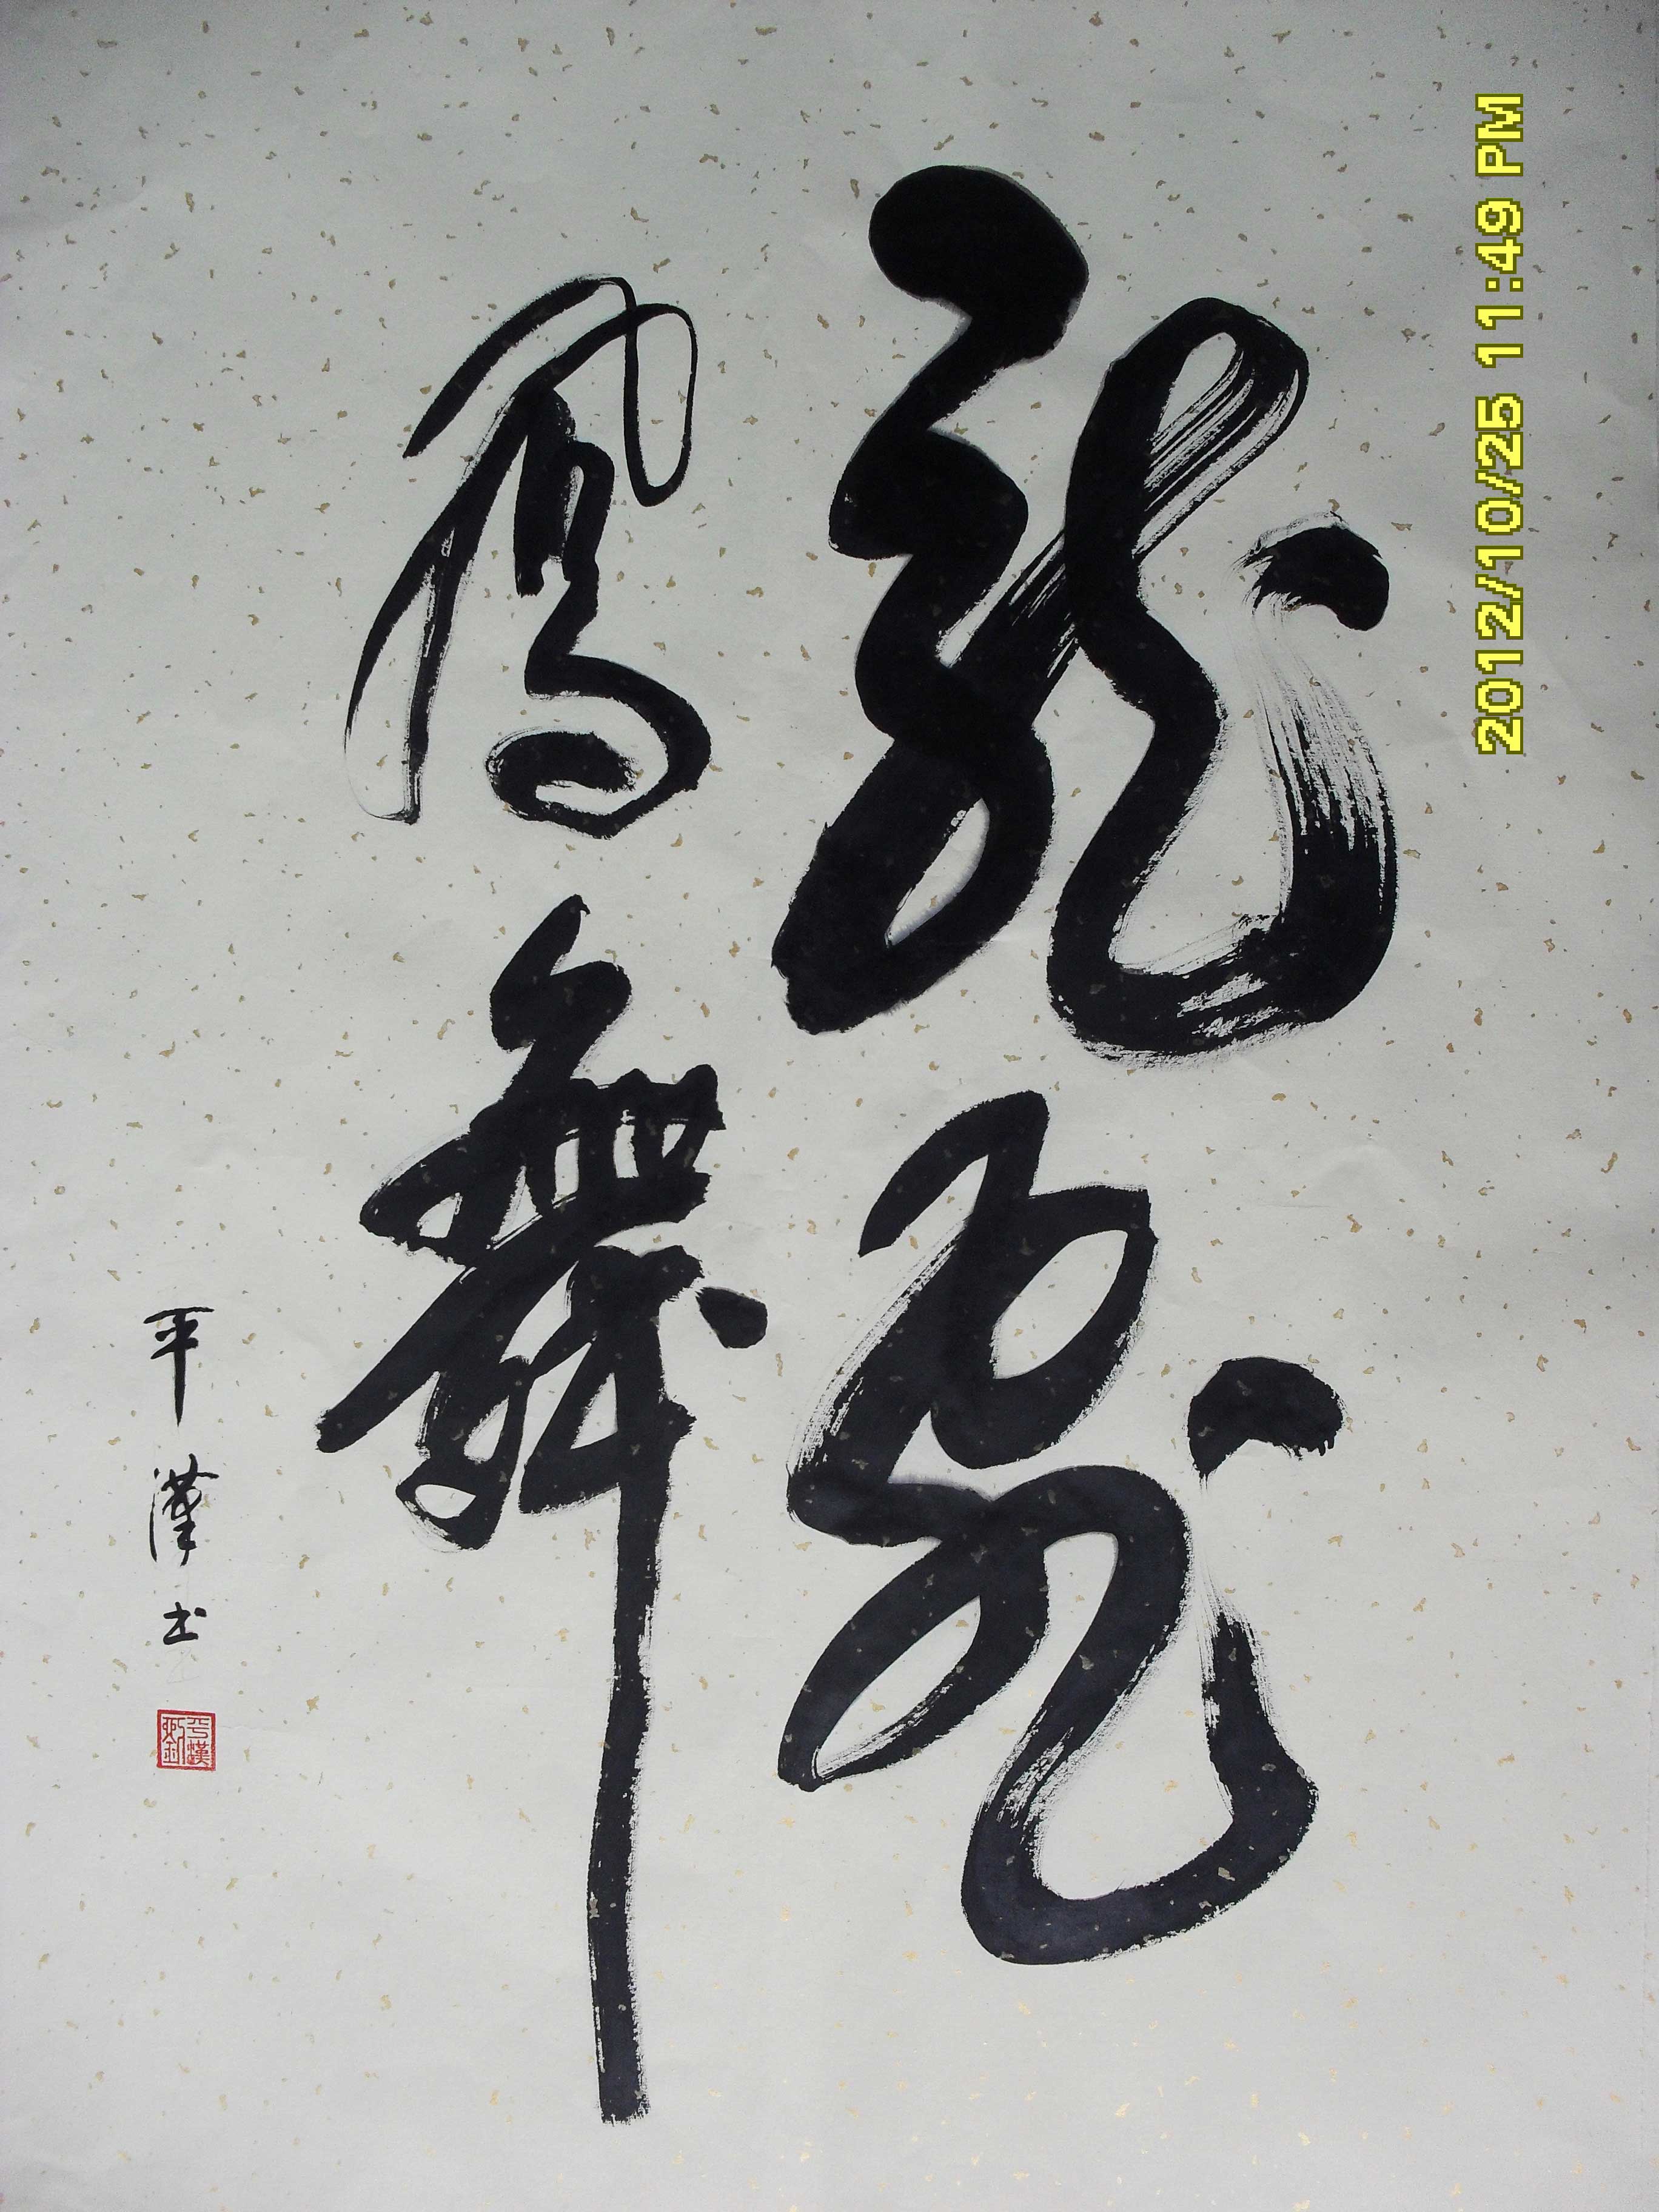 龍飛
鳳舞
平漢书
2012/10/25 11:49 PM